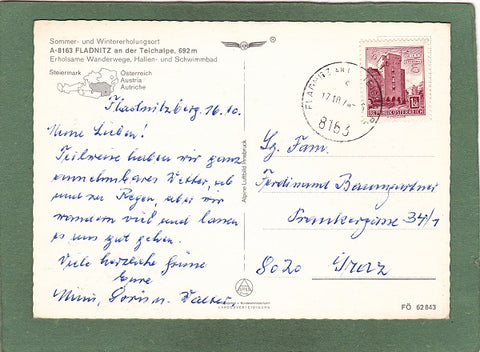 Sommer- und Wintererholungsort
A-8163 FLADNITZ an der Teichalpe, 692 m
Erholsame Wanderwege, Hallen- und Schwimmbad
Steiermark
Österreich
Austria
Autriche
Fladnitzberg, 16.10.
Meine Lieben!
Teilweise haben wir ganz
annehmbares Wetter, ab
und zu Regen, aber wir
wandern viel und lassen
es uns gut gehen.
Viele herzliche Grüsse
Eure
Mimi, Doris u. Walter
Alpine Luftbild Innsbruck
FLADNITZ AN
17.10.7
8163
REPUBLIK ÖSTERREICH
Fam.
Ferdinand Baumgartner
34/1
8020 Graz
LANDESVERTEIDIGUNG
FÖ 62843